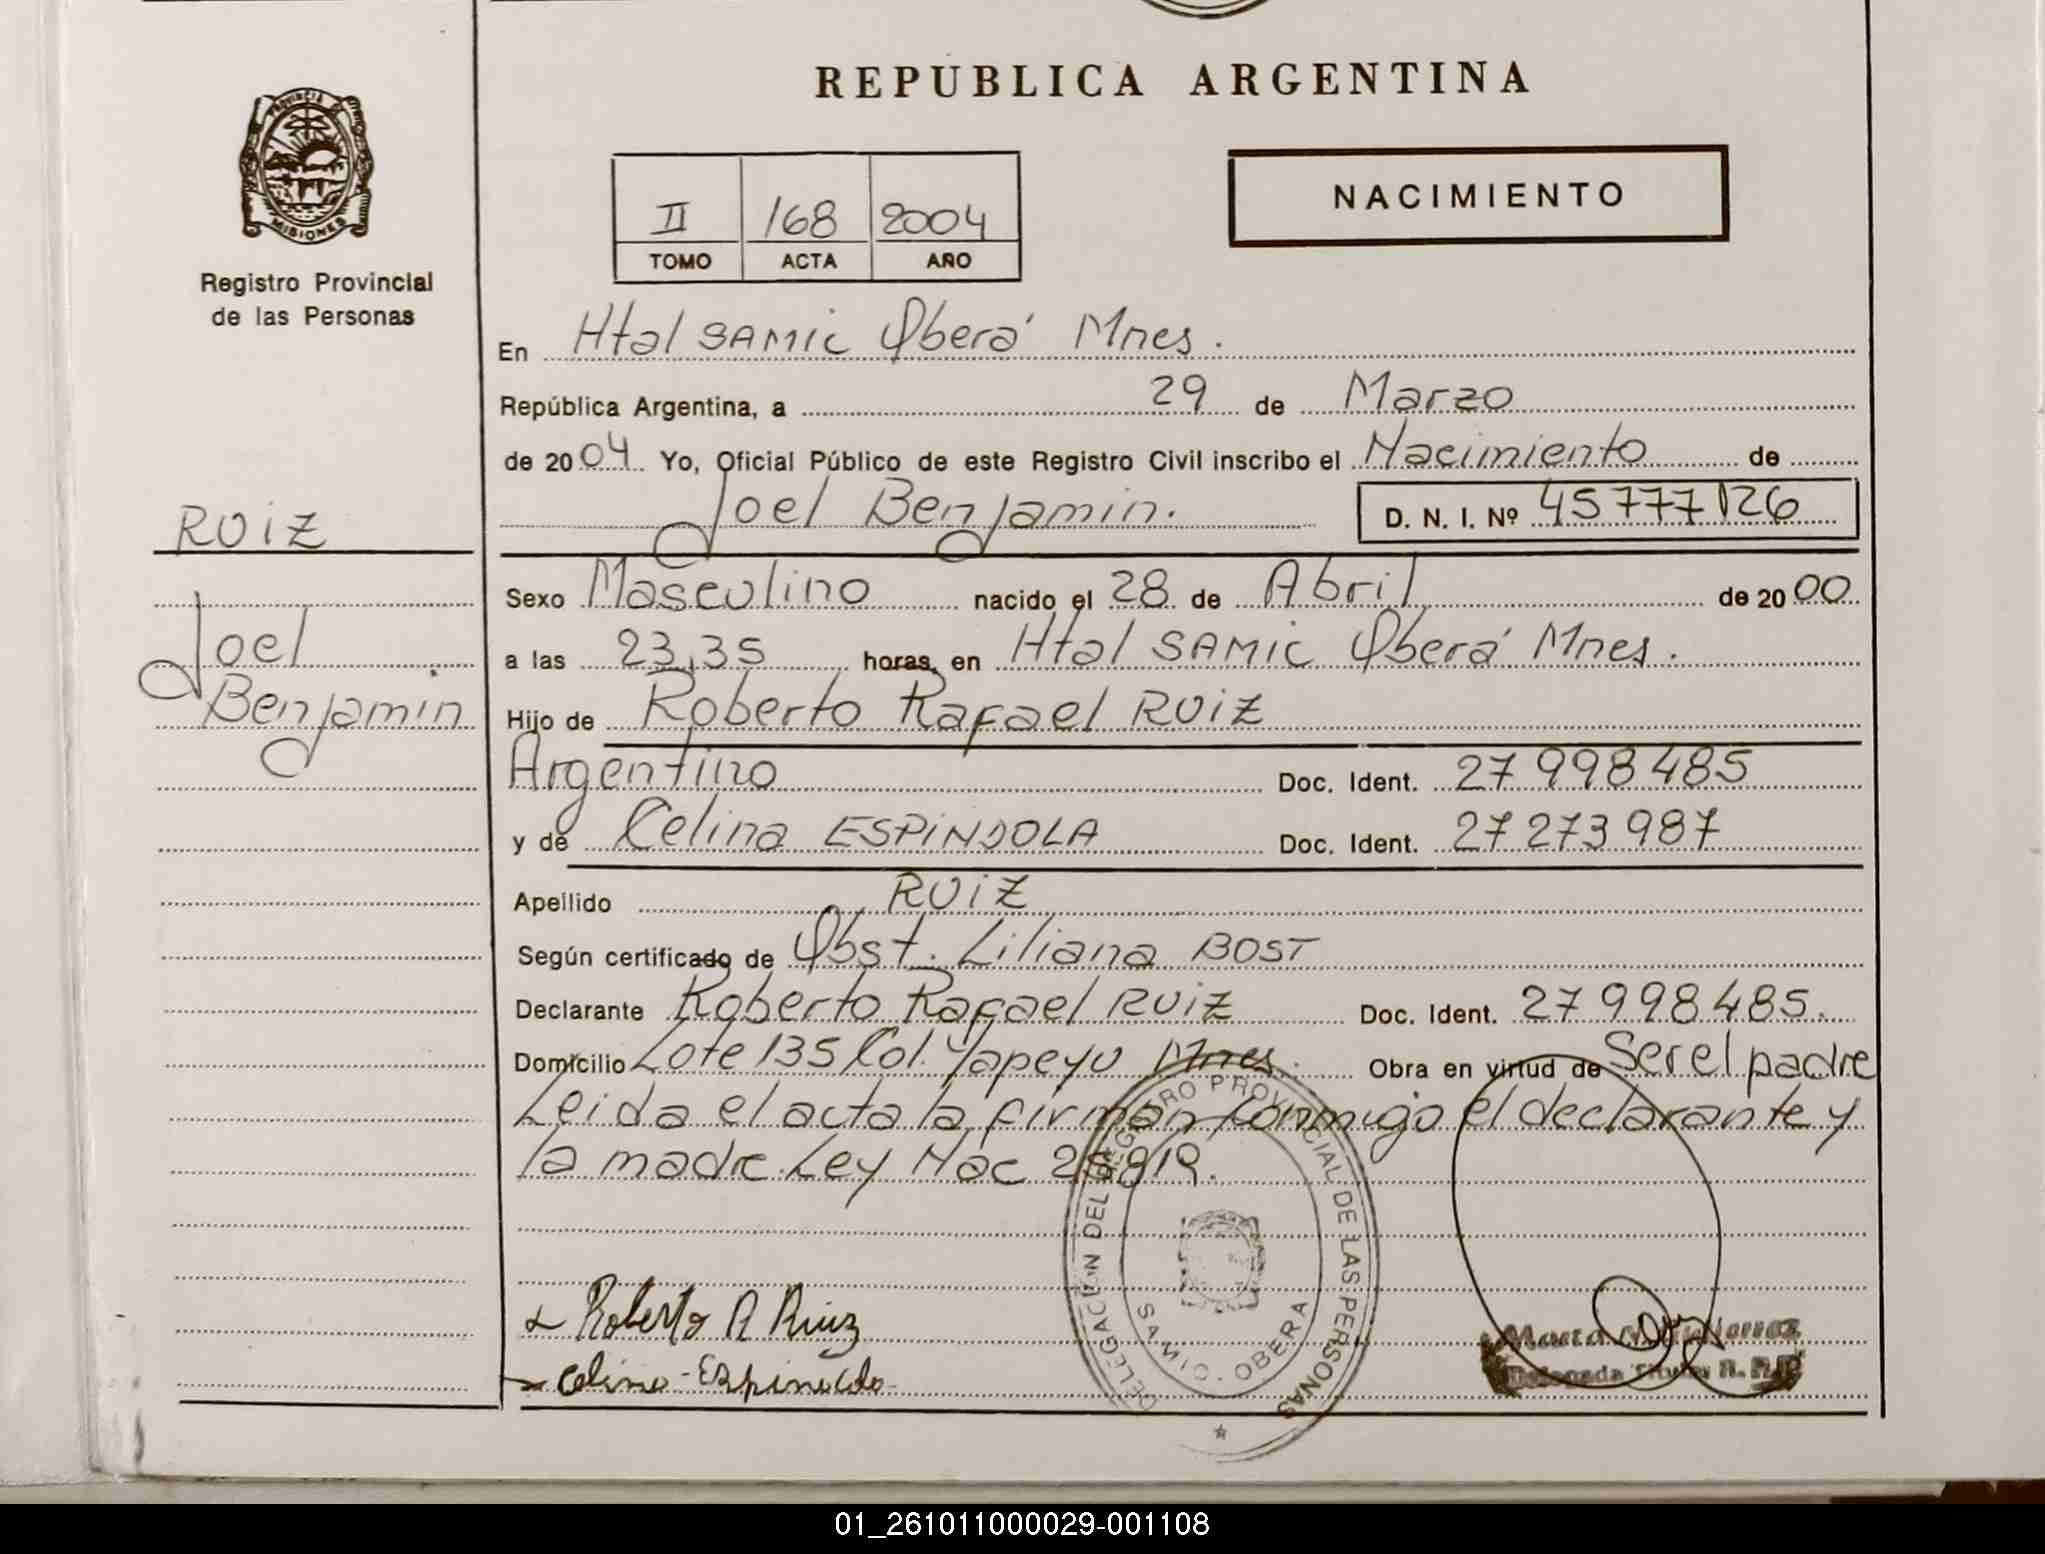 REPUBLICA ARGENTINA
PROVINCIA DE
MISIONES
Registro Provincial
de las Personas
NACIMIENTO
II 168 2004
TOMO ACTA AÑO
En Htal SAMIC Oberá Mnes.
República Argentina, a 29 de Marzo
de 2004 Yo, Oficial Público de este Registro Civil inscribo el Nacimiento de
Joel Benjamin. D. N. I. Nº 45777126
RUIZ
Joel
Benjamin
Sexo Masculino nacido el 28 de Abril de 2000
a las 23,35 horas, en Htal SAMIC Oberá Mnes.
Hijo de Roberto Rafael RUIZ
Argentino Doc. Ident. 27998485
y de Celina ESPINDOLA Doc. Ident. 27273987
Apellido RUIZ
Según certificado de Obst. Liliana BOST
Declarante Roberto Rafael RUIZ Doc. Ident. 27998485.
Domicilio Lote 135 Col. Yapeyu Mnes. Obra en virtud de Ser el padre
Leida el acta la firman conmigo el declarante y
la madre. Ley Nac 25.819.
DELEGACION DEL REGISTRO PROVINCIAL DE LAS PERSONAS
SAMIC - OBERA
Roberto R Ruiz
Celina - Espindola
Marta
Delegada Titular R.P.P
01_261011000029-001108